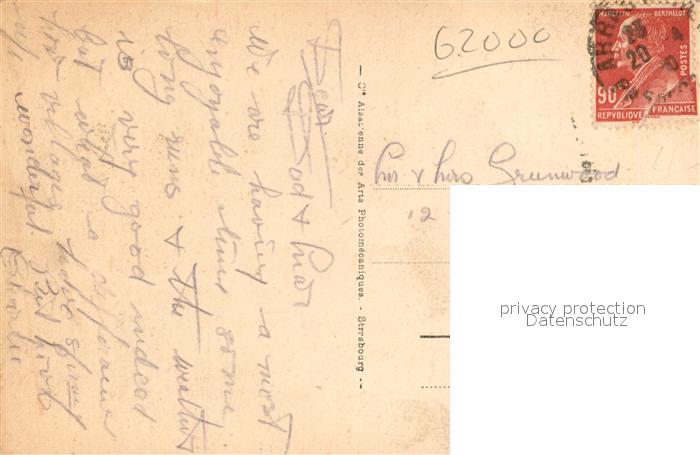 62000
MARCELIN BERTHELOT
90
POSTES
REPVBLIQVE FRANÇAISE
Dear Dad & Mar
We are having a most
enjoyable time some
long runs & the weather
is very good indeed
but what a difference
villages
wonderful
Cie Alsacienne des Arts Photomécaniques. - Strasbourg
Mr & Mrs Greenwood
12
privacy protection
Datenschutz